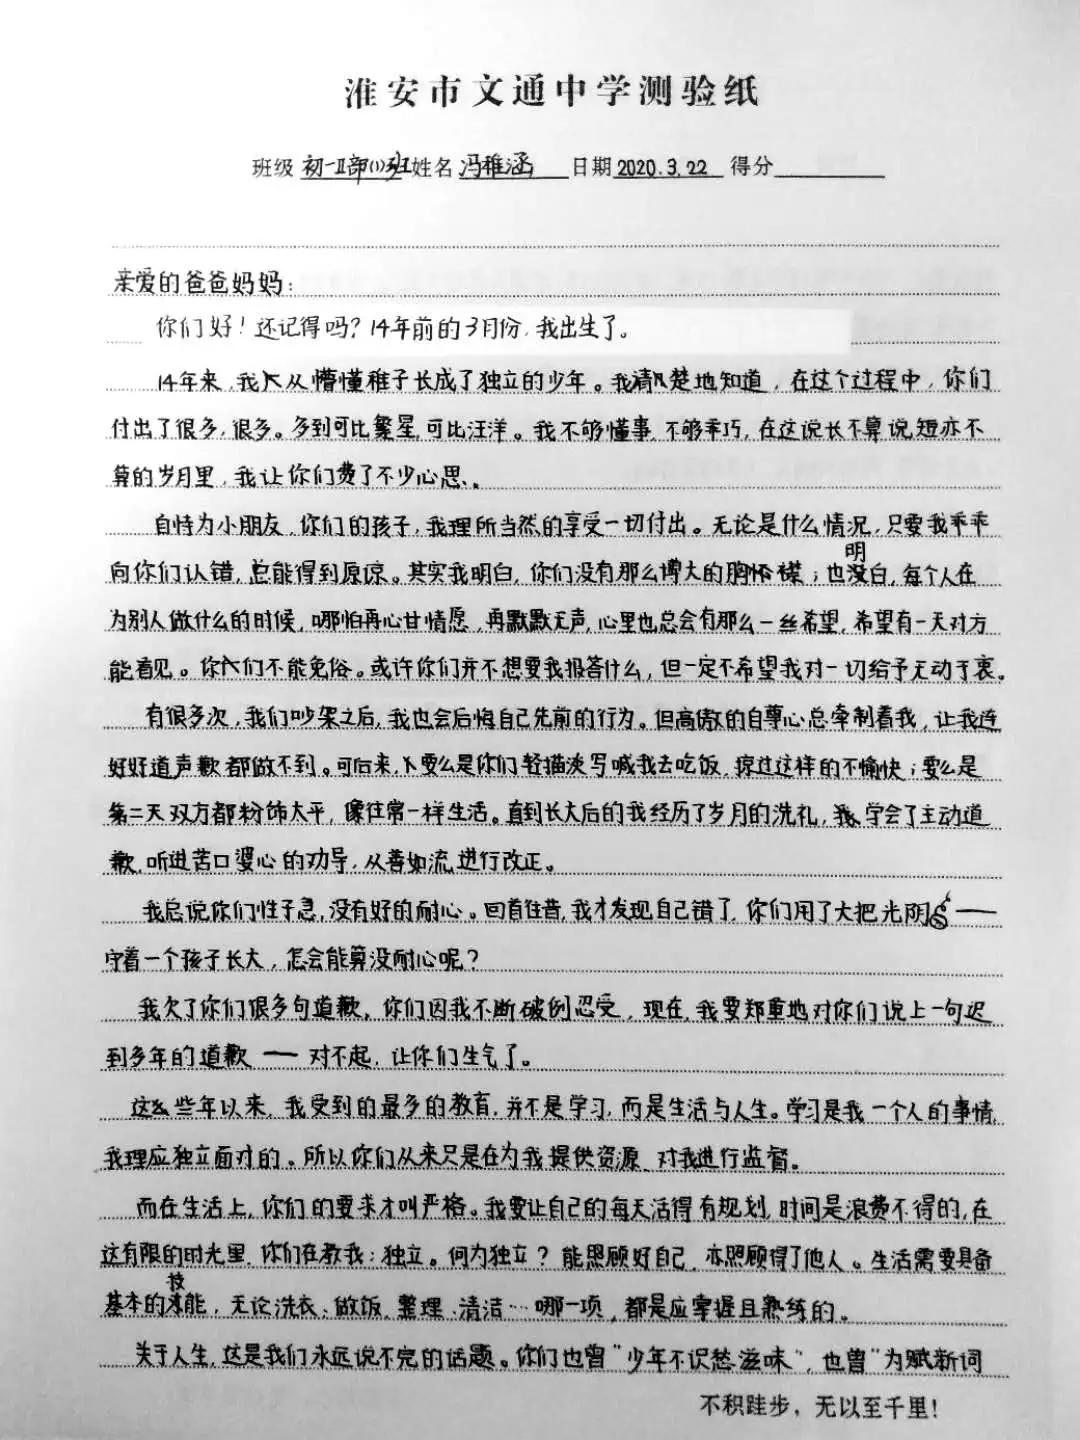 淮安市文通中学测验纸
班级 初一II部(1)班 姓名 冯稚涵 日期 2020.3.22 得分
亲爱的爸爸妈妈:
你们好!还记得吗?14年前的3月份,我出生了。
14年来,我从懵懂稚子长成了独立的少年。我清楚地知道,在这个过程中,你们
付出了很多,很多。多到可比繁星,可比汪洋。我不够懂事,不够乖巧,在这说长不算说短亦不
算的岁月里,我让你们费了不少心思。
自恃为小朋友,你们的孩子,我理所当然的享受一切付出。无论是什么情况,只要我乖乖
向你们认错,总能得到原谅。其实我明白,你们没有那么博大的胸襟;也明白,每个人在
为别人做什么的时候,哪怕再心甘情愿,再默默无声,心里也总会有那么一丝希望,希望有一天对方
能看见。你们不能免俗。或许你们并不想要我报答什么,但一定不希望我对一切给予无动于衷。
有很多次,我们吵架之后,我也会后悔自己先前的行为。但高傲的自尊心总牵制着我,让我连
好好道声歉都做不到。可后来,要么是你们轻描淡写喊我去吃饭,掠过这样的不愉快;要么是
第二天双方都粉饰太平,像往常一样生活。直到长大后的我经历了岁月的洗礼,我学会了主动道
歉,听进苦口婆心的劝导,从善如流,进行改正。
我总说你们性子急,没有好的耐心。回首往昔,我才发现自己错了,你们用了大把光阴——
守着一个孩子长大,怎会能算没耐心呢?
我欠了你们很多句道歉,你们因我不断破例忍受,现在,我要郑重地对你们说上一句迟
到多年的道歉——对不起,让你们生气了。
这么些年以来,我受到的最多的教育,并不是学习,而是生活与人生。学习是我一个人的事情,
我理应独立面对的。所以你们从来只是在为我提供资源,对我进行监督。
而在生活上,你们的要求才叫严格。我要让自己的每天活得有规划,时间是浪费不得的,在
这有限的时光里,你们在教我:独立。何为独立?能照顾好自己,亦照顾得了他人。生活需要具备
基本的技能,无论洗衣、做饭、整理、清洁…哪一项,都是应掌握且熟练的。
关于人生,这是我们永远说不完的话题。你们也曾“少年不识愁滋味”,也曾“为赋新词
不积跬步,无以至千里!